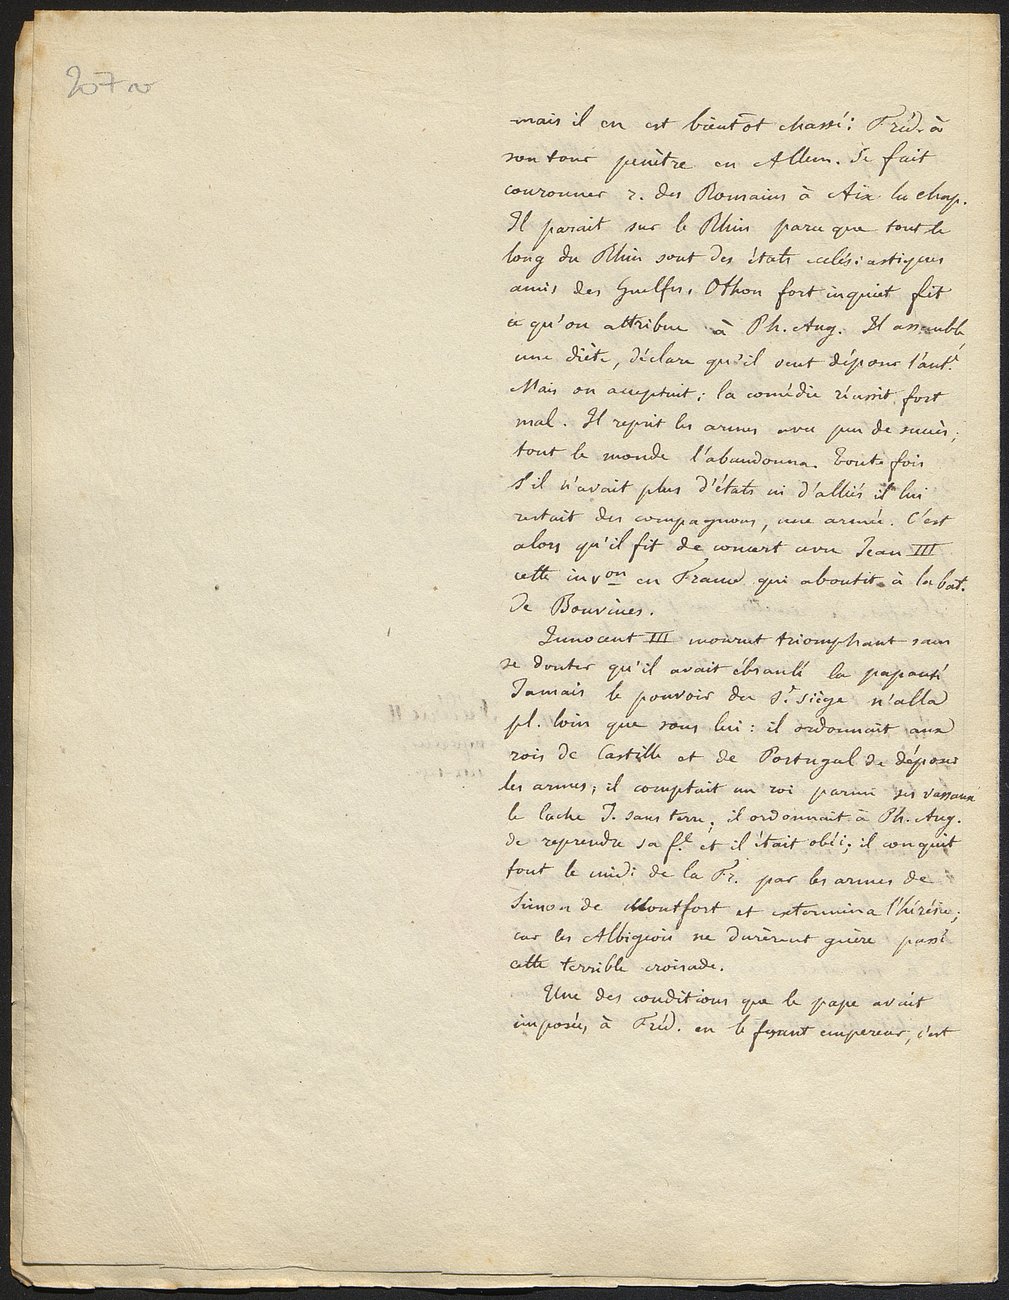 207 v
mais il en est bientôt chassé : Fréd. à
son tour pénètre en Allem. Se fait
couronner r. des Romains à Aix la chap.
Il parait sur le Rhin parce que tout le
long du Rhin sont des états ecclésiastiques
amis des Guelfes. Othon fort inquiet fit
ce qu'on attribue à Ph. Aug. Il assemble
une diète, déclare qu'il veut déposer l'aut.é
Mais on acceptait ; la comédie réussit fort
mal. Il reprit les armes avec peu de succès ;
tout le monde l'abandonna. Toutefois
s'il n'avait plus d'états ni d'alliés il lui
restait des compagnons, une armée. C'est
alors qu'il fit de concert avec Jean III
cette inv on en France qui aboutit à la bat.
de Bouvines.
Innocent III mourut triomphant sans
se douter qu'il avait ébranlé la papauté
Jamais le pouvoir du St. siège n'alla
pl. loin que sous lui : il ordonnait aux
rois de Castille et de Portugal de déposer
les armes ; il comptait un roi parmi ses vassaux
le lache J. sans terre ; il ordonnait à Ph. Aug.
de reprendre sa f.e et il était obéi ; il conquit
tout le midi de la Fr. par les armes de
Simon de Montfort et extermina l'hérésie ;
car les Albigeois ne durèrent guère passé
cette terrible croisade.
Une des conditions que le pape avait
imposées à Fréd. en le fesant empereur, c'est